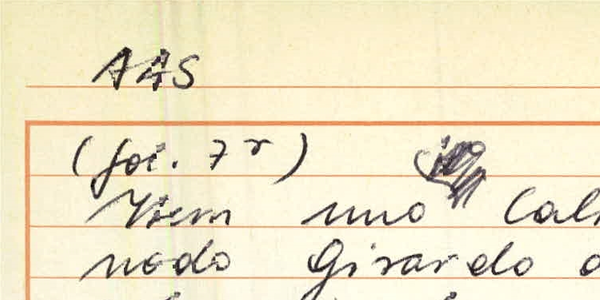 AAS
(fol. 7r)
Item uno
nodo Girardo